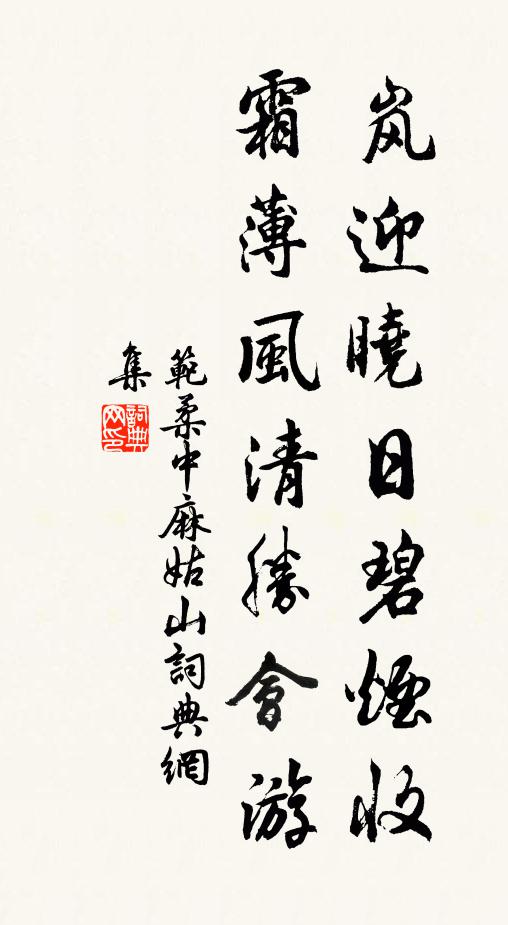 岚迎曉日碧煙收
霜薄風清勝會游
範柔中麻姑山詞典網
集
詞典
网印